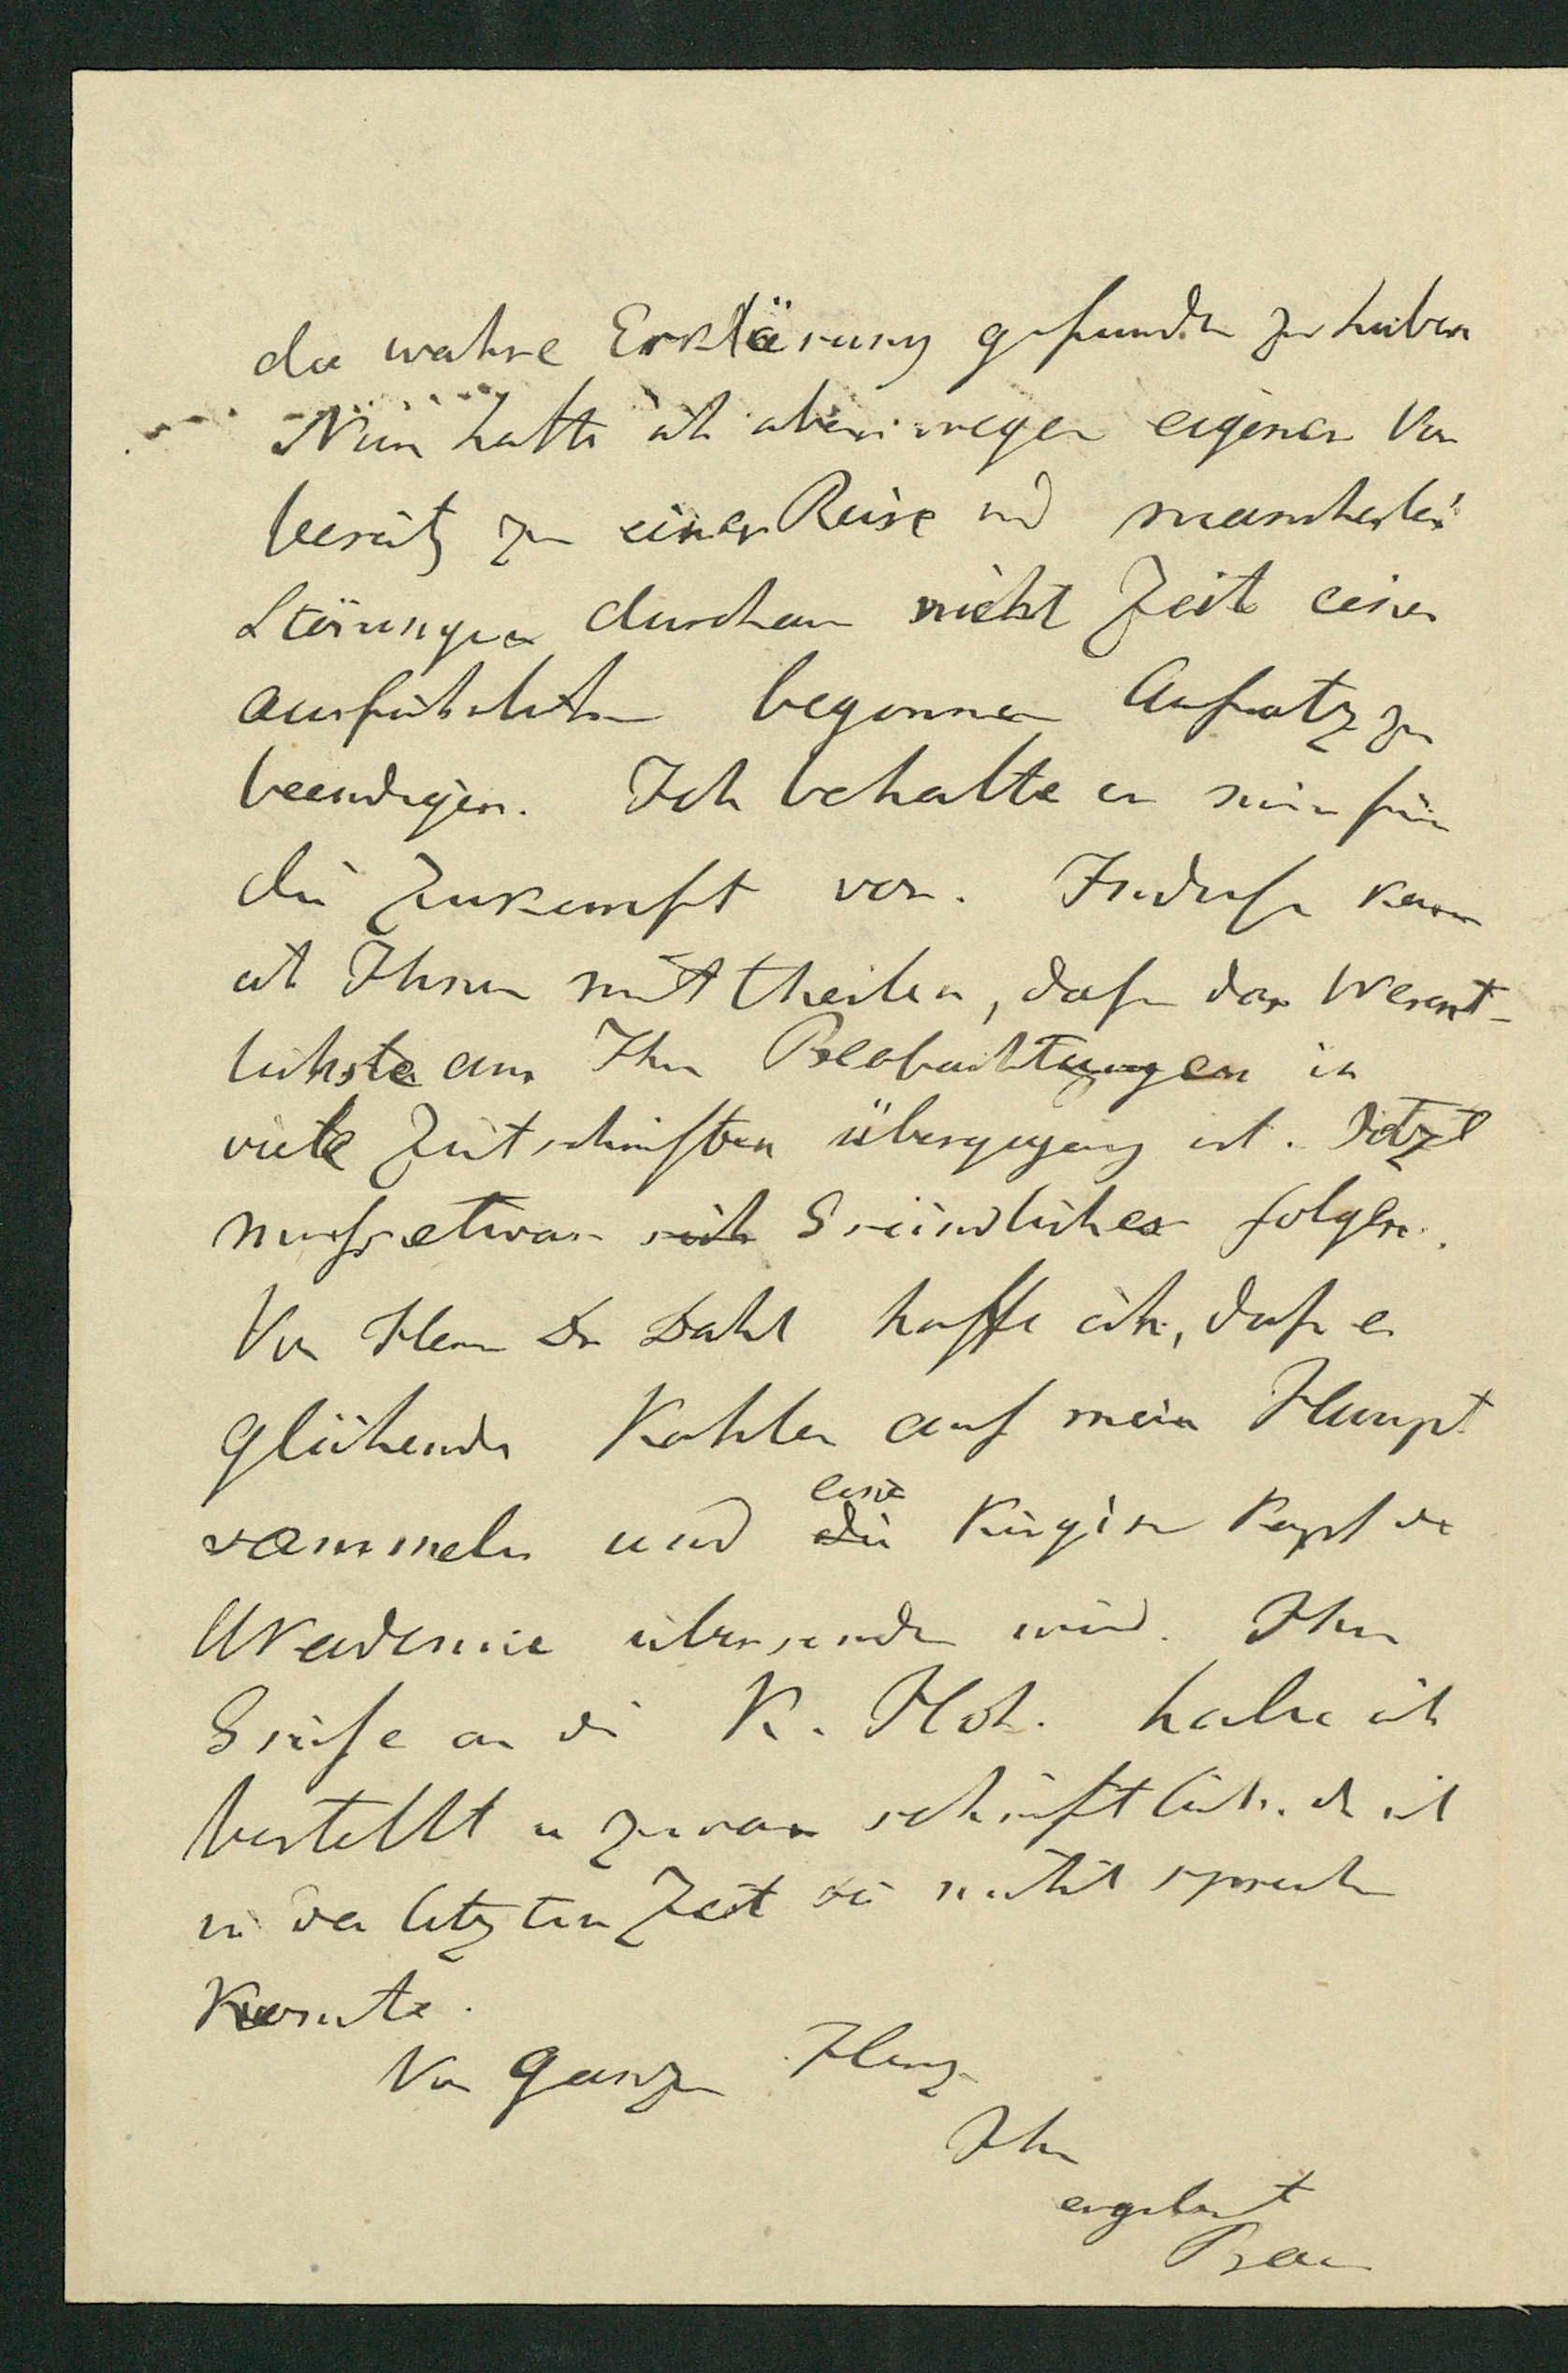 die wahre Erklärung gefunden zu haben
Nun hatte ich aber wegen eigener Vor
bereitg zu einer Reise und mancherlei
Störungen durchaus nicht Zeit einen
ausführlichen begonnen Aufsatz zu
beendigen. Ich behalte es mir für
die Zukunft vor. Indess kann
ich Ihnen mittheilen, dass das Wesent-
lichste aus Ihren Beobachtungen in
viele Zeitschriften übergegang ist. Jetzt
muss etwas Gründliches folgen.
Von Herrn Dr Dahl hoffe ich, dass er
glühende Kohlen auf mein Haupt
sammeln und eine Kirgisen Kopf der
Akademie übersenden wird. Ihre
Grüsse an die K. Hoh. habe ich
bestellt u zwar schriftlich, da ich
in der letzten Zeit sie nicht sprechen
konnte.
Von ganzem Herzen
Ihr
ergebenst
Baer